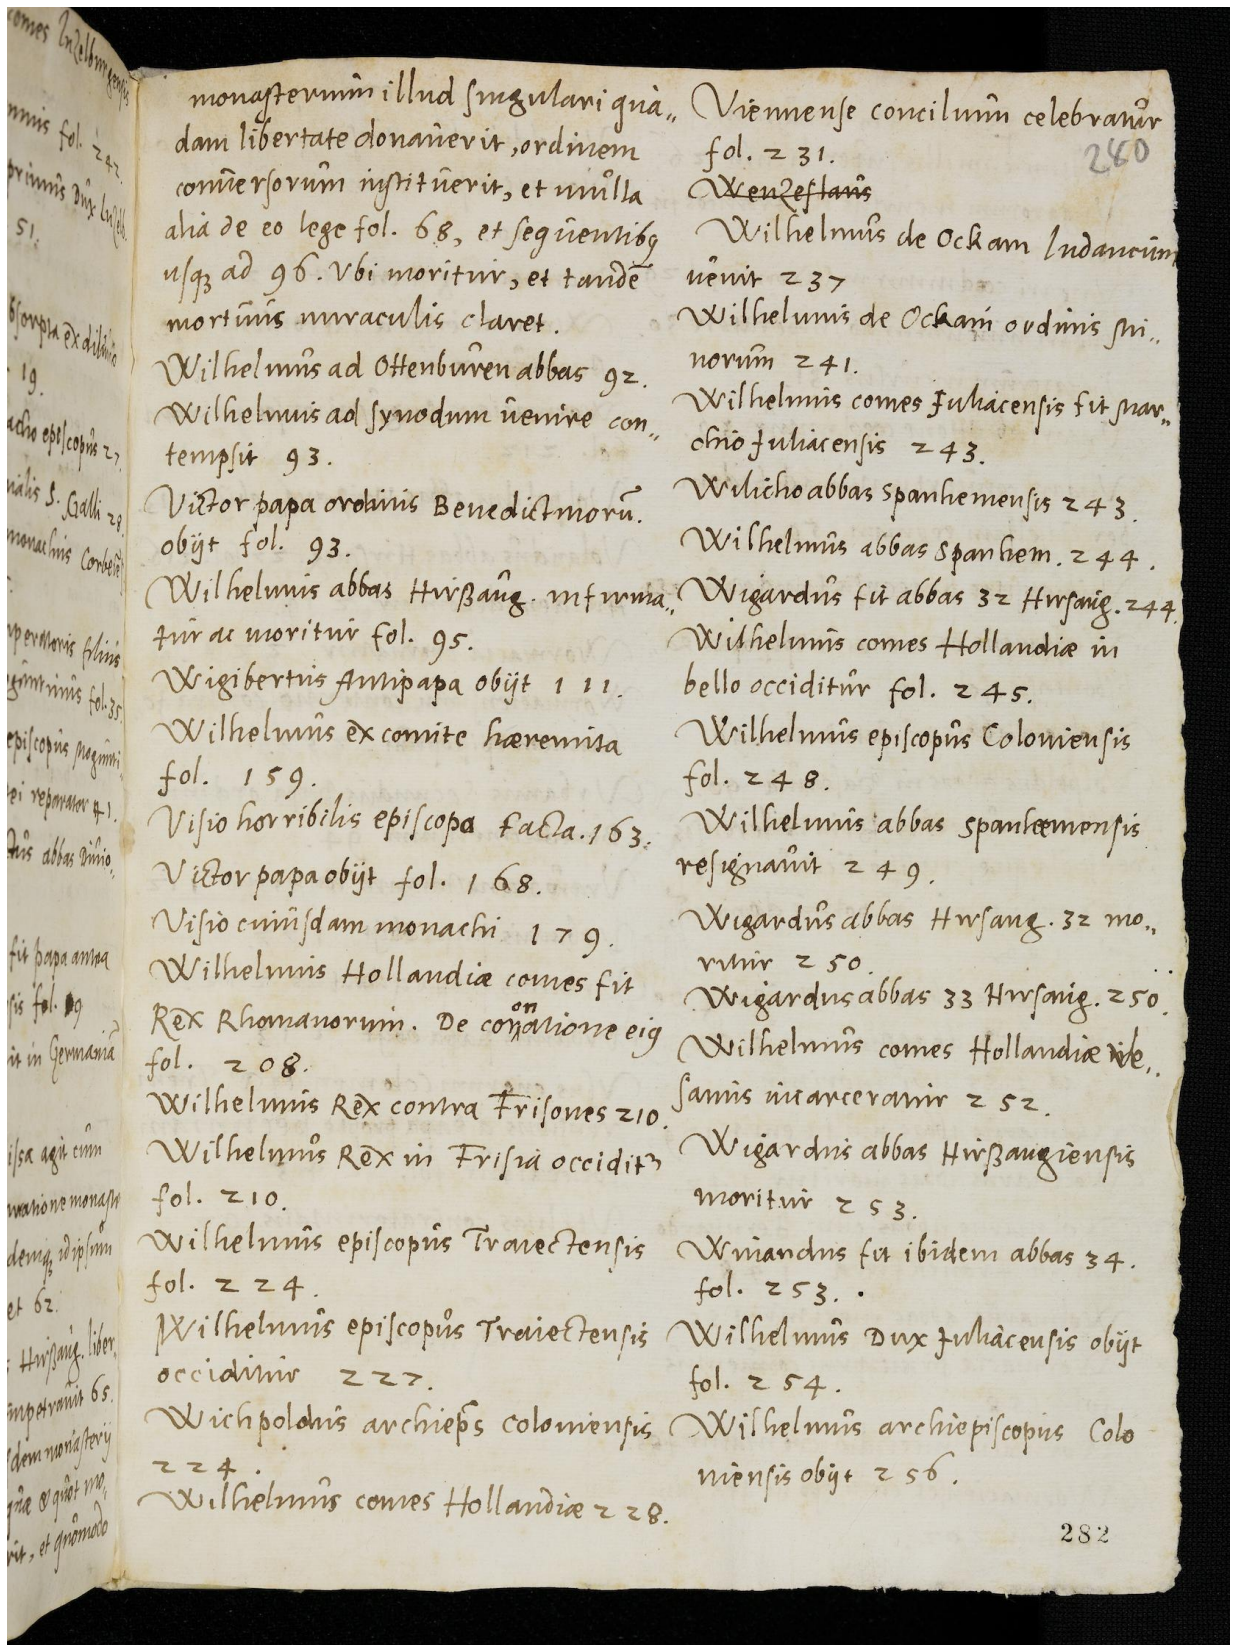 monasterium illud singulari qua„
dam libertate donaverit, ordinem
conversorum instituerit, et multa
alia de eo lege fol. 68, et sequentibq
usqꝫ ad 96. Ubi moritur, et tandē
mortuus miraculis claret.
Wilhelmus ad Ottenburen abbas 92.
Wilhelmus ad synodum venire con„
tempsit 93.
Victor papa ordinis Benedictinorū.
obijt fol. 93.
Wilhelmus abbas Hirßaug. infirma„
tur ac moritur fol. 95.
Wigibertus Antipapa obijt 111.
Wilhelmus ex comite hæremita
fol. 159.
Visio horribilis episcopo facta. 163.
Victor papa obijt fol. 168.
Visio cuiusdam monachi 179.
Wilhelmus Hollandiæ comes fit
Rex Rhomanorum. De coronatione eiq
fol. 208.
Wilhelmus Rex contra Frisones 210.
Wilhelmus Rex in Frisia occidit᷑
fol. 210.
Wilhelmus episcopus Traiectensis
fol. 224.
Wilhelmus episcopus Traiectensis
occiditur 227.
Wichpoldus archiep̄s Coloniensis
224.
Wilhelmus comes Hollandiæ 228.
Viennense concilium celebratur
fol. 231.
280
Wenzeslaus
Wilhelmus de Ockam
venit 237
Wilhelmus de Ockam ordinis Mi„
norum 241.
Wilhelmus comes Juliacensis fit Mar„
chio Juliacensis 243.
Wilicho abbas Spanhemensis 243.
Wilhelmus abbas Spanhem. 244.
Wigardus fit abbas 32 Hirsaug. 244.
Wilhelmus comes Hollandiæ in
bello occiditur fol. 245.
Wilhelmus episcopus Coloniensis
fol. 248.
Wilhelmus abbas Spanhemensis
resignavit 249.
Wigardus abbas Hirsaug. 32 mo„
ritur 250.
Wigardus abbas 33 Hirsaug. 250.
Wilhelmus comes Hollandiæ ve„
sanus incarceratur 252.
Wigardus abbas Hirßaugiensis
moritur 253.
Winandus fit ibidem abbas 34.
fol. 253.
Wilhelmus Dux Juliacensis obijt
fol. 254.
Wilhelmus archiepiscopus Colo
niensis obijt 256.
282